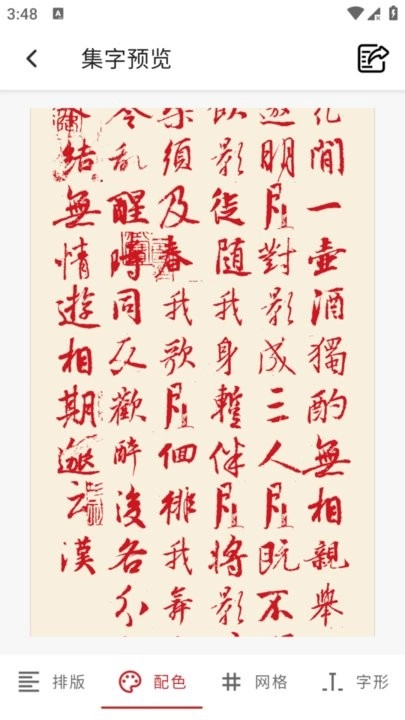 3:48
集字预览
花間一壺酒獨酌無相親舉
邀明月對影成三人月既不
飲影徒隨我身暫伴月將影
樂須及春我歌月佪排我舞
零亂醒時同交歡醉後各分
結無情遊相期邈云漢
排版 配色 网格 字形